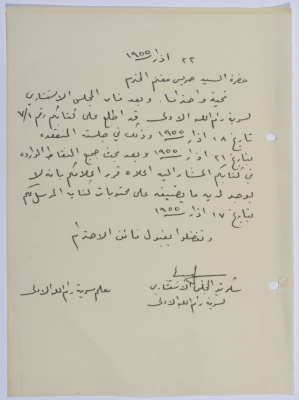 ٢٢ اذار ١٩٥٥
حضرة السيد جريس مغنم المحترم
تحية واحتراما. وبعد فان المجلس الاستشاري
لسرية رام الله الاولى قد اطلع على كتابكم رقم ٧/١
تاريخ ١٨ اذار ١٩٥٥ وذلك في جلسته المنعقدة
بتاريخ ٢١ اذار ١٩٥٥ وبعد بحث جميع النقاط الواردة
في كتابكم المشار اليه اعلاه قرر اعلامكم بان لا
يوجد لديه ما يضيفه على محتويات كتابه المرسل لكم
بتاريخ ١٧ اذار ١٩٥٥
وتفضلوا بقبول فائق الاحترام
سكرتير المجلس الاستشاري
لسرية رام الله الاولى
معلم سرية رام الله الاولى